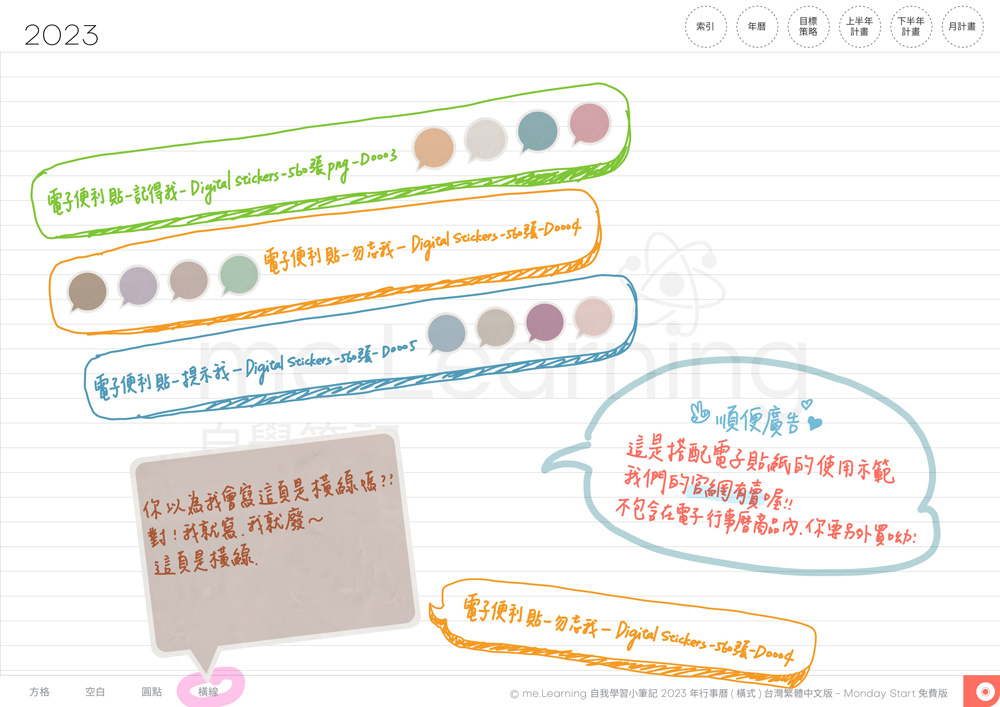 2023
索引
年曆
目標
策略
上半年
計畫
下半年
計畫
月計畫
電子便利貼-記得我-Digital Stickers-560張png-D0003
電子便利貼-勿忘我-Digital Stickers-560張-D0004
電子便利貼-提示我-Digital Stickers-560張-D0005
me.Learning
自學筆記
順便廣告
這是搭配電子貼紙的使用示範
我們的官網有賣喔!!
不包含在電子行事曆商品內,你要另外買呦!
你以為我會寫這頁是橫線嗎??
對!我就寫.我就廢~
這頁是橫線.
電子便利貼-勿忘我-Digital Stickers-560張-D0004
方格
空白
圓點
橫線
© me.Learning 自我學習小筆記 2023 年行事曆 ( 橫式 ) 台灣繁體中文版 - Monday Start 免費版